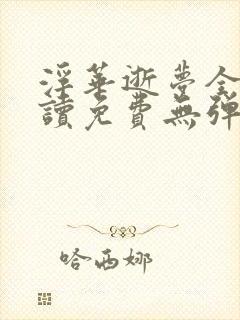 淫華逝夢全
讀免費無彈
哈西娜